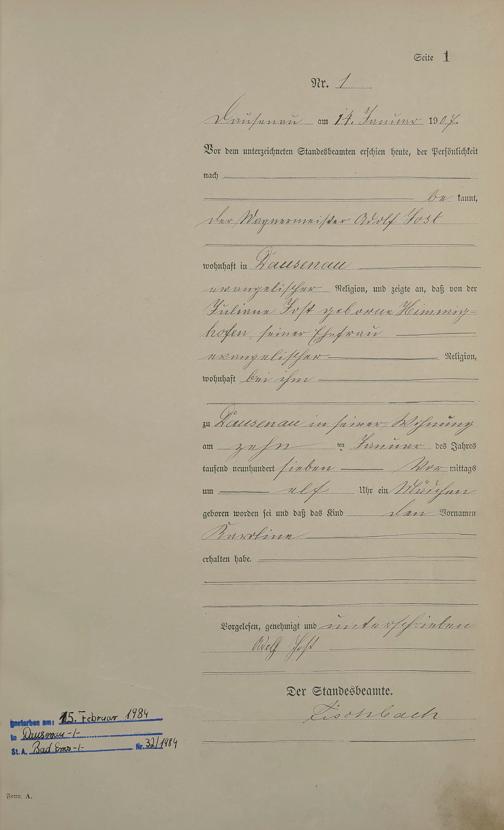 Seite 1
Nr. 1
Dausenau am 14. Januar 1907.
Vor dem unterzeichneten Standesbeamten erschien heute, der Persönlichkeit
nach
be kannt,
der Wagnermeister Adolf Jost
wohnhaft in Dausenau
evangelischer Religion, und zeigte an, daß von der
Juliane Jost geborne Himmig-
hofen, seiner Ehefrau
evangelischer Religion,
wohnhaft bei ihm
zu Dausenau in seiner Wohnung
am zehn ten Januar des Jahres
tausend neunhundert sieben Vor mittags
um elf Uhr ein Mädchen
geboren worden sei und daß das Kind den Vornamen
Karoline
erhalten habe.
Vorgelesen, genehmigt und unterschrieben
Adolf Jost
Der Standesbeamte.
Fischbach
gestorben am: 15. Februar 1984
in Dausenau -/-
St. A. Bad Ems -/- Nr. 32/1984
Form. A.